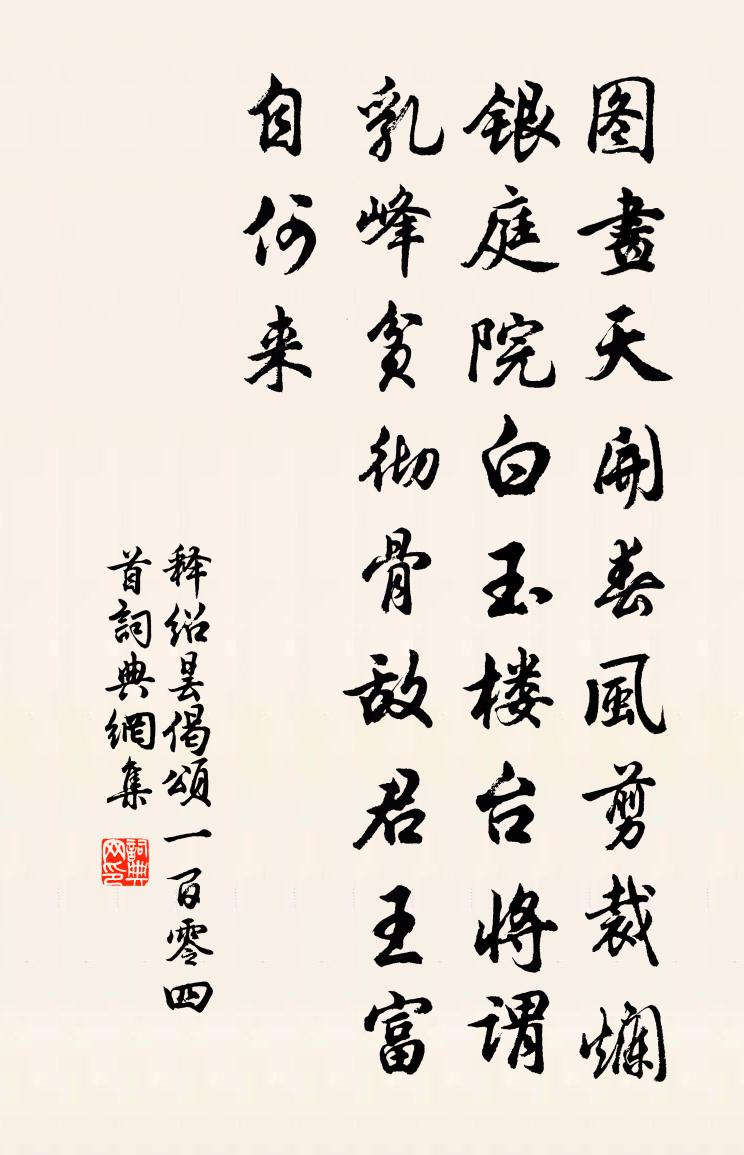 图畫天開春風剪裁爛
银庭院白玉楼台將谓
乳峰贫彻骨敌君王富
自何来
释绍昙偈頌一百零四
首詞典網集
詞典网印